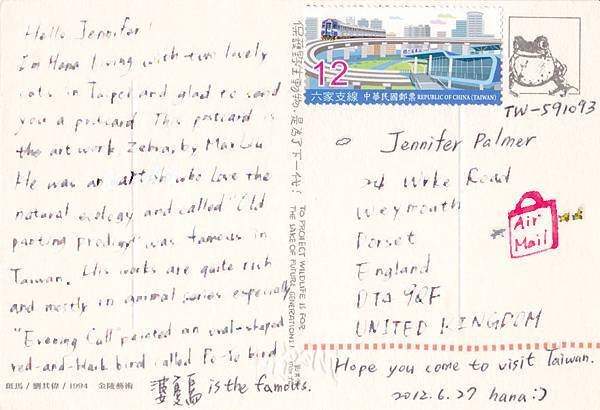 Hello Jennifer!
I'm Hana living with two lovely
cats in Taipei and glad to send
you a postcard. This postcard is
the art work Zebras, by Max Liu
He was an artish who love the
natural ecology and called "Old
panting prodigy" was famous in
Taiwan. His works are quite rich
and mostly in animal series especially
"Evening Call" painted an oval-shaped
red-and-black bird called Po-so bird
婆娑鳥 is the famous.
斑馬 / 劉其偉 / 1994 金陵藝術
保護野生動物,是為了下一代!
TO PROTECT WILDLIFE IS FOR
THE SAKE OF FUTURE GENERATIONS!
12
六家支線 中華民國郵票 REPUBLIC OF CHINA (TAIWAN)
TW-591093
Jennifer Palmer
24 Wyke Road
Weymouth
Dorset
England
DT4 9QF
UNITED KINGDOM
Air
Mail
Hope you come to visit Taiwan.
2012.6.27 hana:)